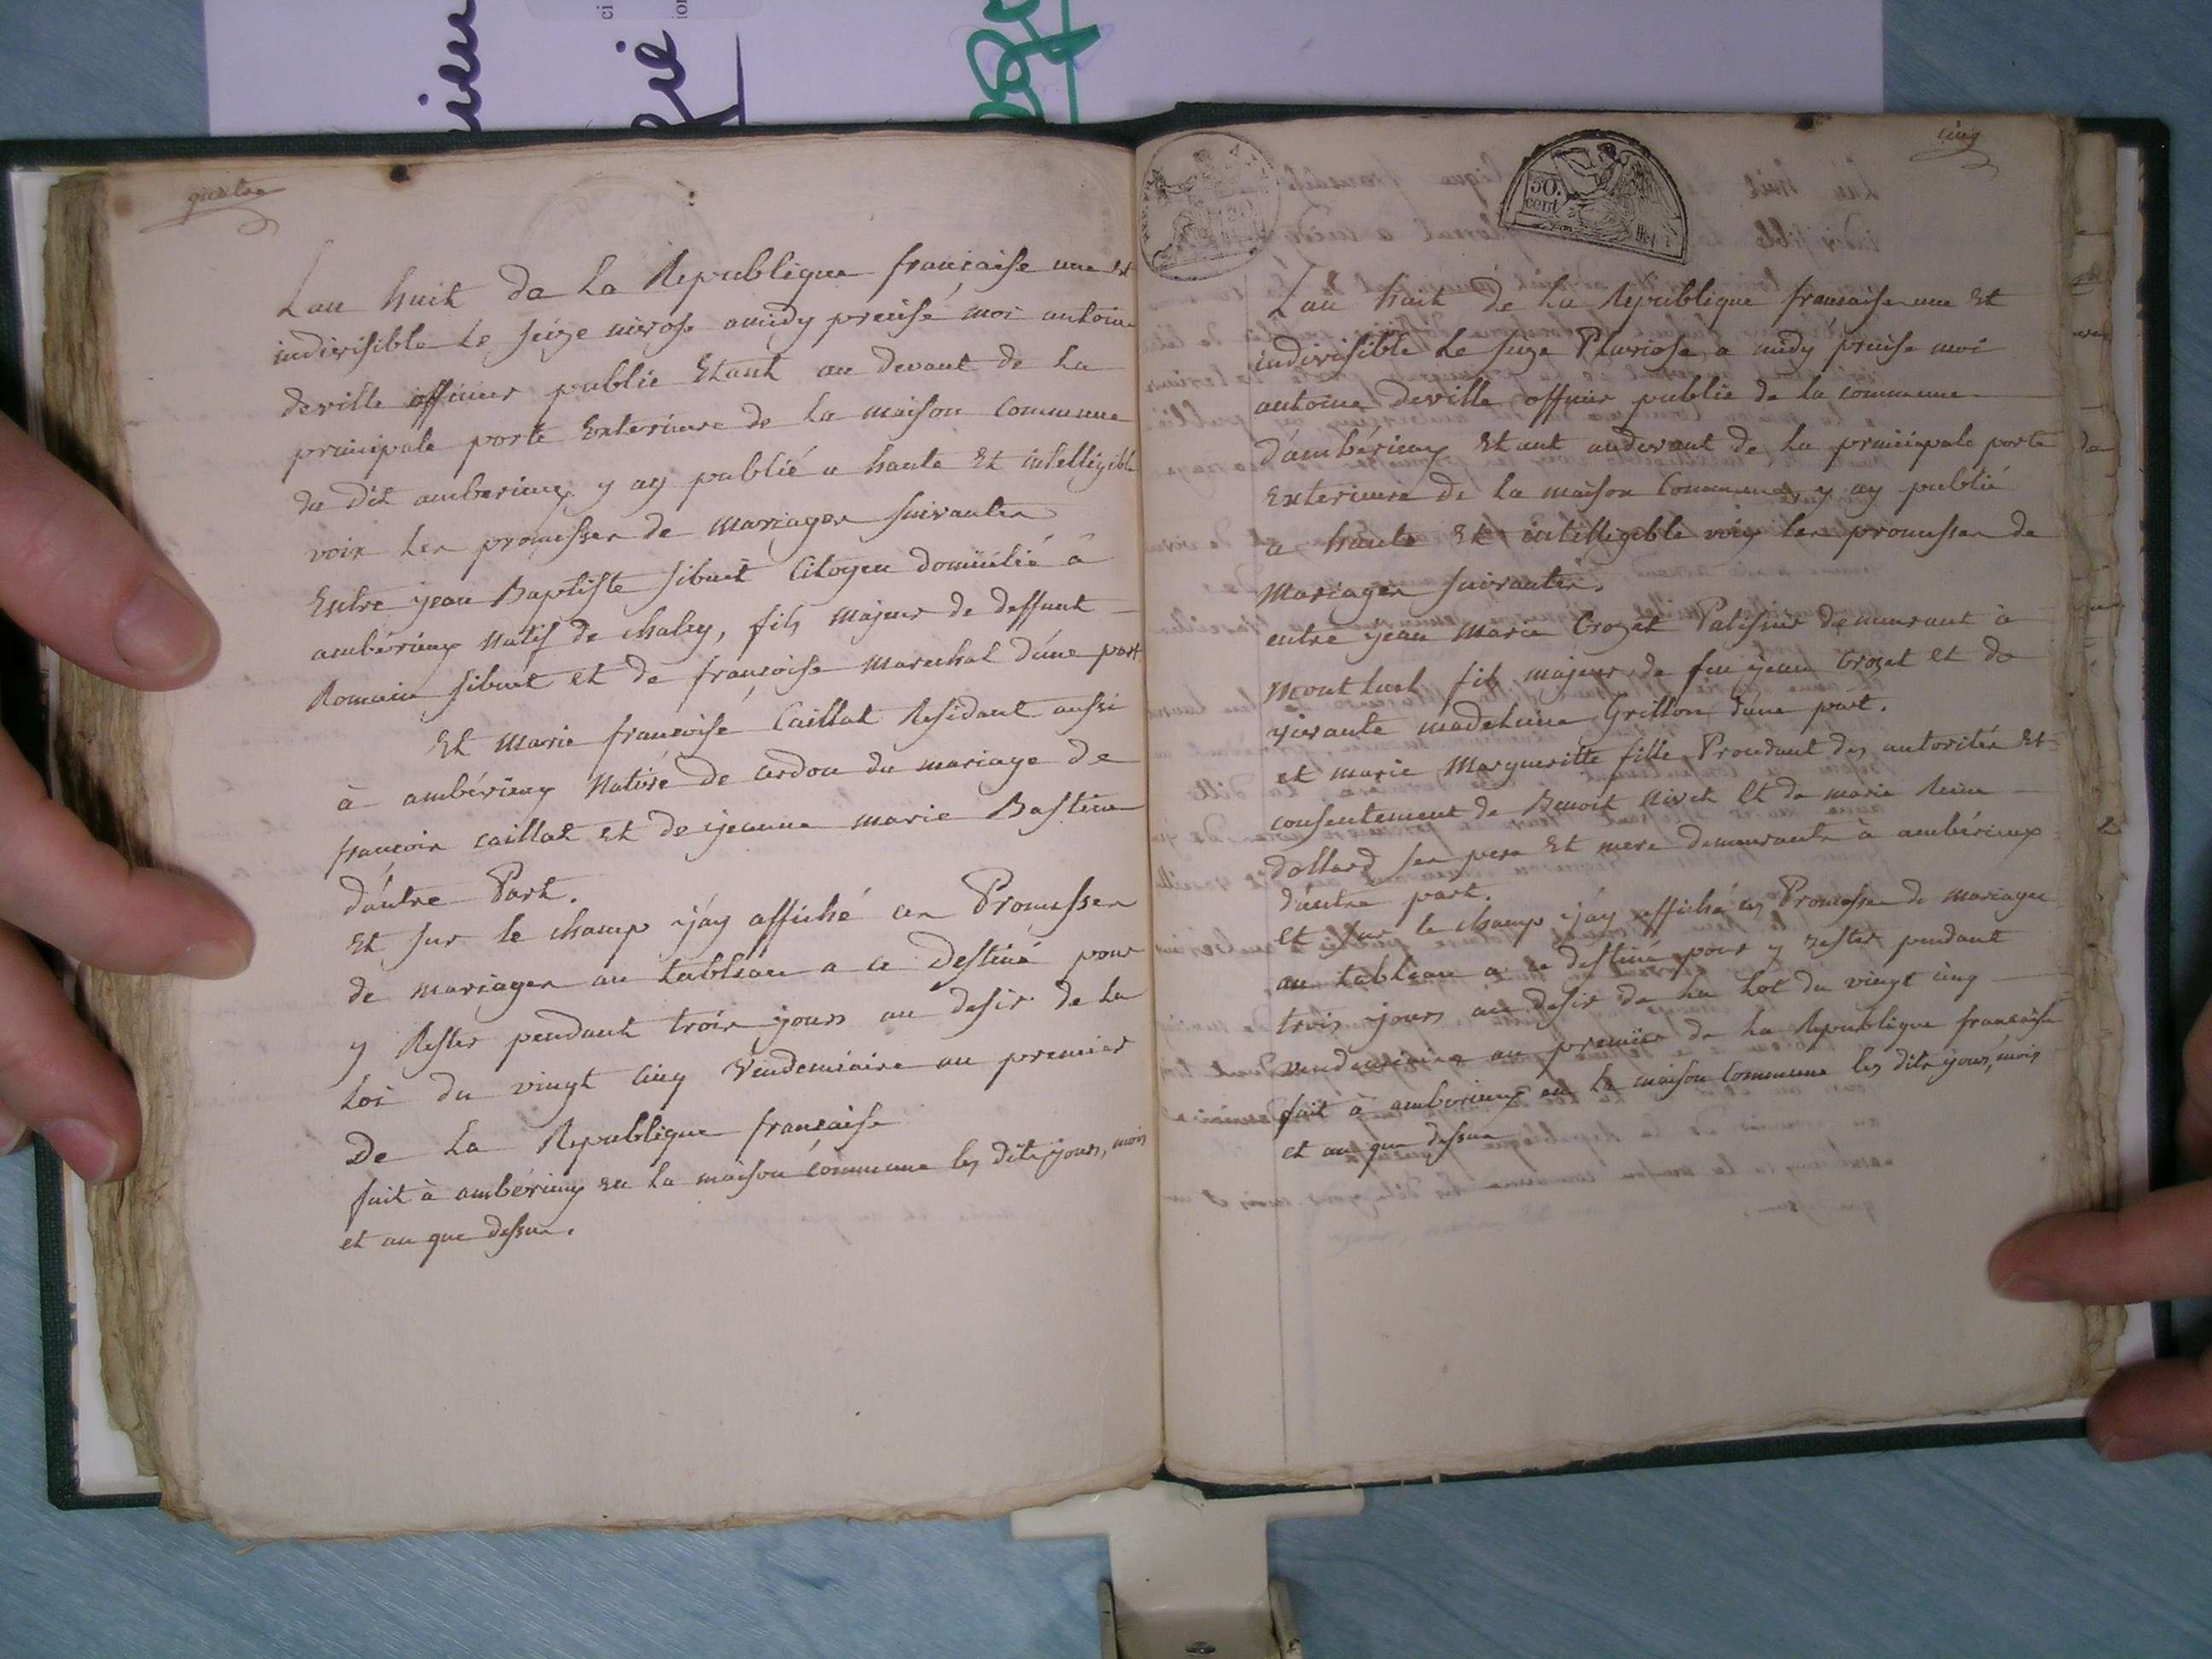 quatre
Lan huit de La Republique francaise une et
indivisible Le seize nivose amidy precisé moi antoine
deville officier public Etant au devant de La
principale porte Exterieure de la maison commune
du dit amberieux y ay publié a haute Et intelligible
voix Les promesses de mariages suivantes
Entre jean Baptiste sibuet Citoyen domicilié à
ambérieux Natif de chaley, fils majeur de deffunt
Romain sibuet et de françoise marechal d'une part
Et Marie francoise Caillat Residant aussi
à ambérieux Native de cerdon du mariage de
francois caillat et de jeanne marie Bastien
d'autre Part.
Et sur le champ j'ay affiché ces Promesses
de mariages au tableau a ce destiné pour
y Rester pendant trois jours au desir de La
Loi du vingt cinq Vendemiaire an premier
De La Republique francaise
fait à ambérieux en la maison commune les dits jours, mois
et an que dessus.
cinq
50.
cent
Lan huit de La Republique francaise une Et
indivisible Le seize Pluviose a midy precise moi
antoine deville officier public de la commune
d'ambérieux Etant audevant de la principale porte
Exterieure de la maison Commune, y ay publié
a haute Et intelligible voix les promesses de
Mariages suivantes.
entre jean Marie Crozet Patissier demeurant à
Montluel fils majeur de feu jean Crozet et de
vivante madeleine Grillon d'une part.
et marie Margueritte fille Procedant des autorités Et
consentement de Benoit Nivet Et de marie Reine
dollard ses pere Et mere demeurants à ambérieux
d'autre part.
et sur le champ j'ay affiché ces Promesses de mariages
au tableau a ce destiné pour y rester pendant
trois jours au desir de la Loi du vingt cinq
vendemiaire an premier de la Republique francaise
fait à amberieux en la maison Commune les dits jours, mois
et an que dessus